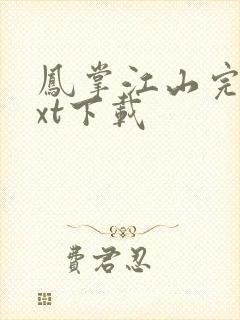 鳳掌江山完
xt下載
費君忍